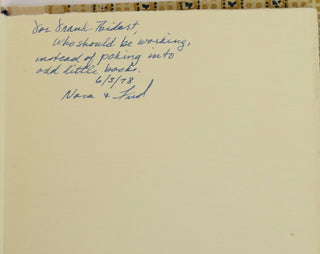 For Frank Bidart,
who should be working,
instead of poking into
odd little books.
6/3/78
Nora &